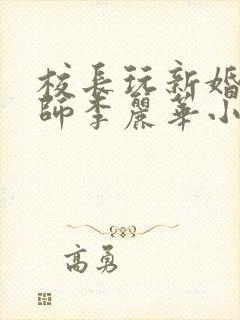 校長玩新婚
師李麗華小
高勇